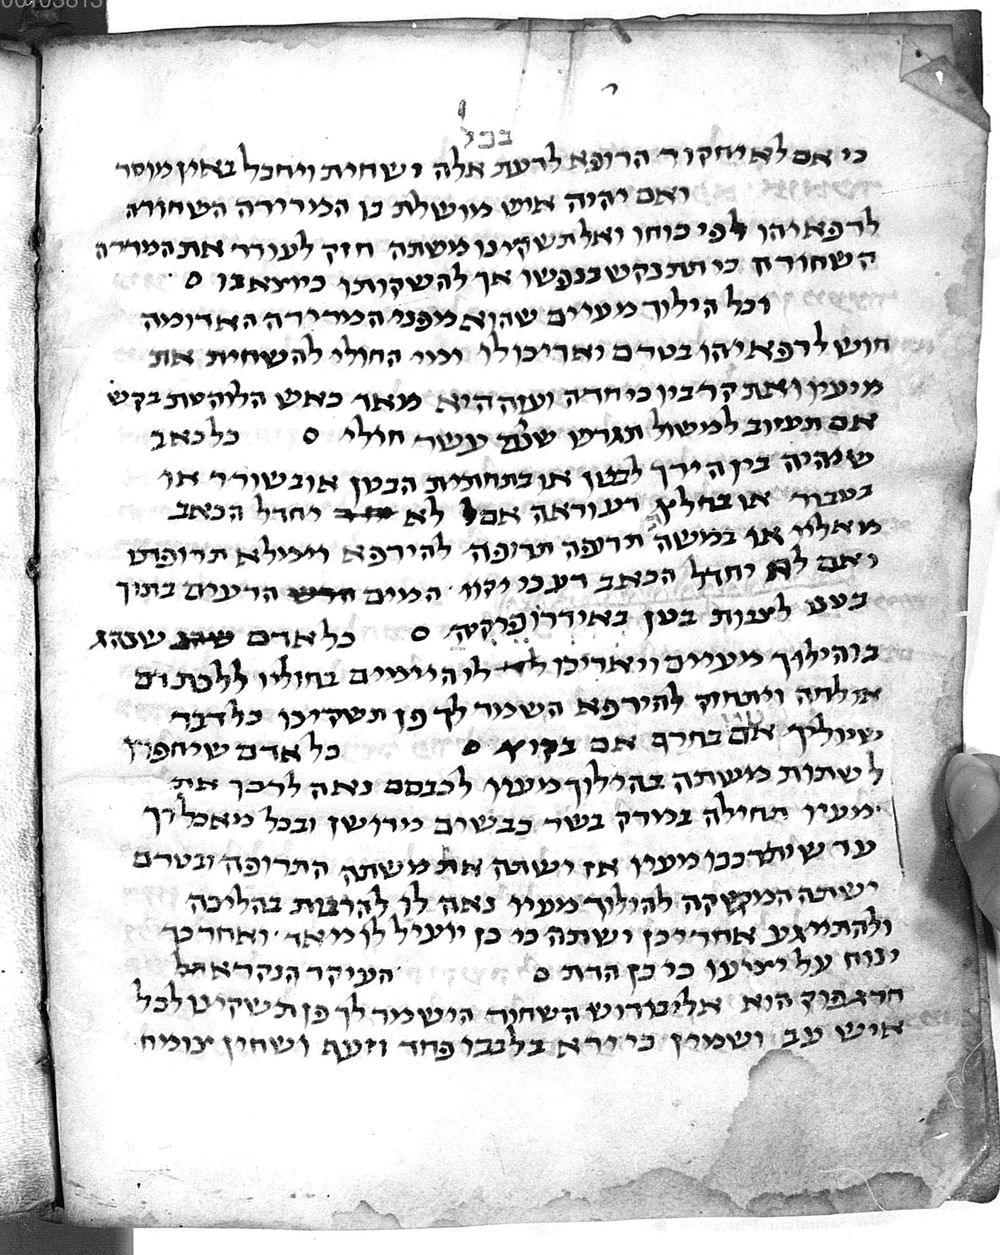 בכל
כי אם לא יחקור הרופא לדעת אלה ישחית ויחבל באין מוסר
ואם יהיה איש מושלת בן המרירה השחורה
לרפאיהו לפי כוחו ואל תשקינו משתה חזק לעורר את המררה
השחורה כי תתנקש בנפשו אך להשקותו כיוצא בו ס
וכל הילוך מעיים שהוא מפני המרירה האדומה
חוש לרפאיהו בטרם יאריכו לו ימי החולי להשחית את
מיעיו ואת קרביו כי חדה ועזה היא מאד כאש הלוהטת בקש
אם תעזוב למשול תגרש עשר חולי ס כל כאב
שיהיה בין הירך לבטן או בתחתית הבטן או בשורר או
בטבור או בחלץ דע וראה אם לא יחדל הכאב
מאליו או במשה תרופה להירפא וימילא תרופש
ואם לא יחדל הכאב דע כי יקוו המים הרעים בתוך
בטנו לצבות בטן באידרופיקיה ס כל אדם שנהג
בו הילוך מעיים ויאריכו לו הימים בחוליו ללכת דם
או לחה ויתחזק להירפא השמר לך פן תשקיהו כל דבר
שיוליך אם בחרף אם בקיץ ס כל אדם שיחפוץ
לשתות משתה בהילוך מעיו לכנסם נאה לרכך את
מעיו תחילה במרק בשר כבשים מדושן ובכל מאכל רך
עד שיתרככו מעיו אז ישתה את משתה התרופה ובטרם
ישתה המשקה להוליך מעיו נאה לו להרבות בהליכה
ולהתייגע אחרי כן ישתה כי כן יועיל לו מאד ואחר כך
ינוח על יציעו כי כן הדת ס העיקר הנקרא
הוא אליבורוש השחור הישמר לך פן תשקיט לכל
איש עב ושמין כי ירא בלבבו פחד וזעף ושחין צומח